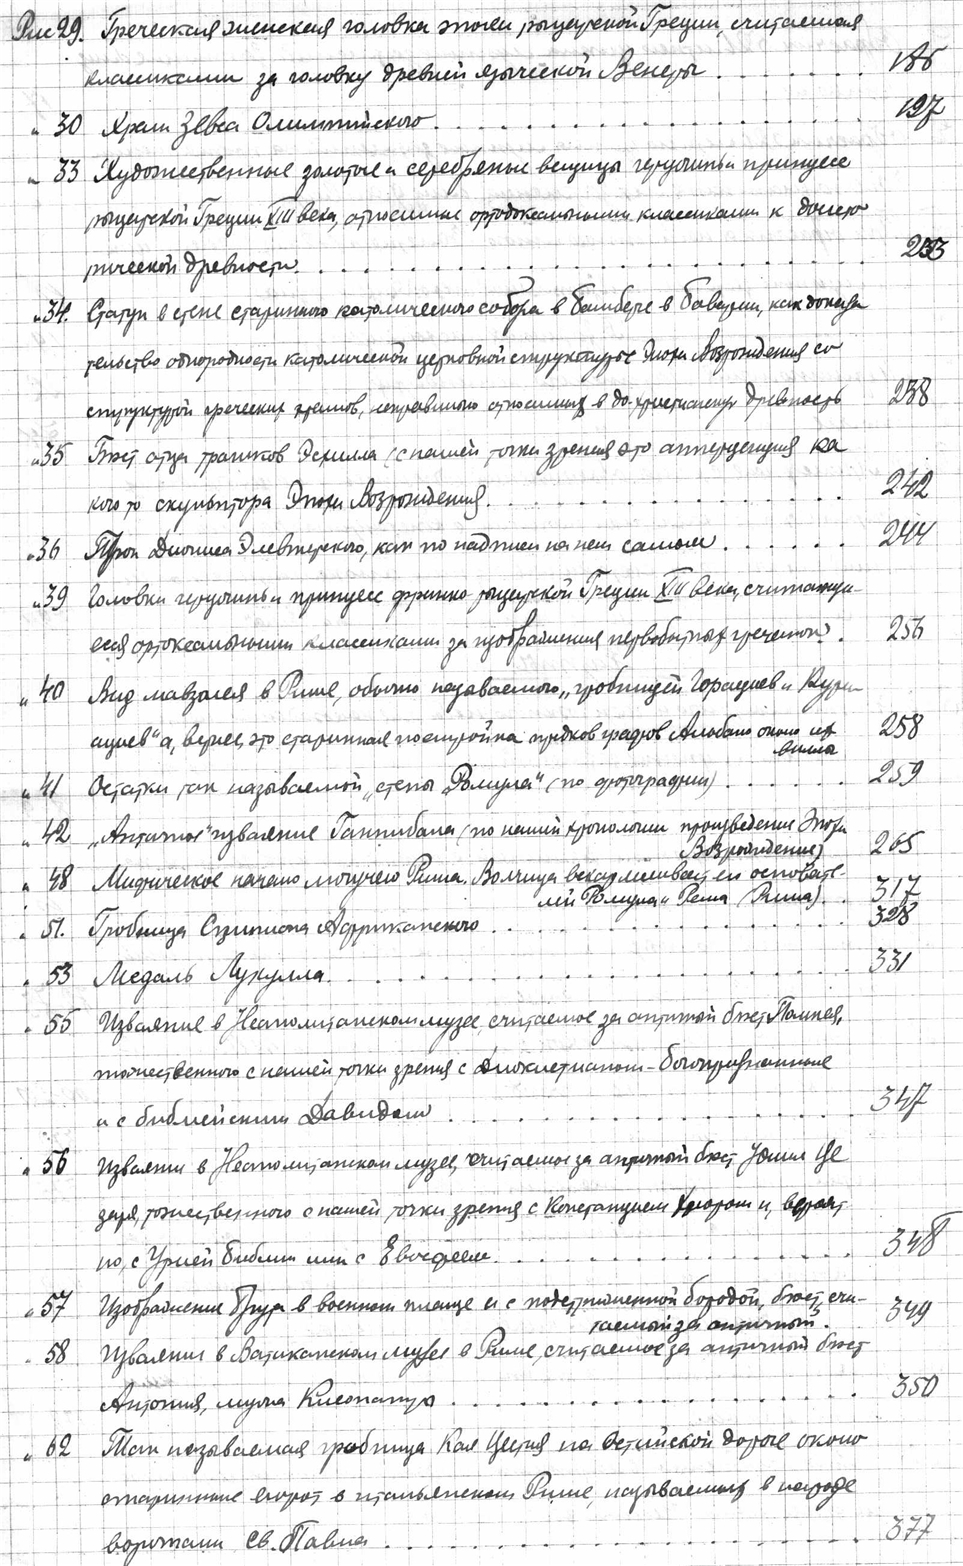 Рис 29. Греческая женская головка эпохи рыцарской Греции, считаемая
классиками за головку древней языческой Венеры . . . . . . . 186
„ 30 Храм Зевса Олимпийского . . . . . . . . . . . . . . . . . 197
„ 33 Художественные золотые и серебряные вещицы герцогинь и принцесс
рыцарской Греции XIII века, относимые ортодоксальными классиками к доисто
рической древности . . . . . . . . . . . . . . . . . . . . . . 233
„ 34. Статуи в стене старинного католического собора в Бамберге в Баварии, как доказа
тельство однородности католической церковной структуры Эпохи Возрождения со
структурой греческих храмов, неправильно относимых в до-христианскую древность 238
„ 35 Бюст отца трагиков Эсхилла (с нашей точки зрения это апперцепция ка
кого то скульптора Эпохи Возрождения . . . . . . . . . . . . . 242
„ 36 Трон Диониса Элевтерского, как по надписи на нем самом . . . . . . 244
„ 39 Головки герцогинь и принцесс франко рыцарской Греции XIII века, считающи-
еся ортоксальными классиками за изображения первобытных гречанок . 256
„ 40 Вид мавзолея в Риме, обычно называемого „гробницей Горациев и Кури-
ациев" а, вернее, это старинная постройка предков графов Альбано около их
виллы 258
„ 41 Остатки так называемой „стены Ромула" (по фотографии) . . . . . . 259
„ 42 „Античное" изваяние Ганнибала (по нашей хронологии произведение Эпохи
Возрождения) 265
„ 48 Мифическое начало могучего Рима. Волчица вскармливает его основате-
лей Ромула и Рема (Рима) . . 317
„ 51. Гробница Сципиона Африканского . . . . . . . . . . . . . . . 328
„ 53 Медаль Лукулла . . . . . . . . . . . . . . . . . . . . . 331
„ 55 Изваяние в Неаполитанском музее, считаемое за античный бюст Помпея,
тожественного с нашей точки зрения с Диоклетианом-богопризванным
и с библейским Давидом . . . . . . . . . . . . . . . . 347
„ 56 Изваяние в Неаполитанском музее, считаемое за античный бюст Юлия Це
заря, тожественного с нашей точки зрения с Констанцием Хлором и, вероят
но, с Урией Библии или с . . . . . . . . . . . . . . 348
„ 57 Изображение Брута в военном плаще и с подстриженной бородой, бюст, счи-
таемый за античный. 349
„ 58 Изваяние в Ватиканском музее в Риме, считаемое за античный бюст
Антония, мужа Клеопатры . . . . . . . . . . . . . . . . 350
„ 62 Так называемая гробница Кая Цестия на Остийской дороге около
старинных ворот в итальянском Риме, называемых в народе
воротами Св. Павла . . . . . . . . . . . . . . . . . . . 377